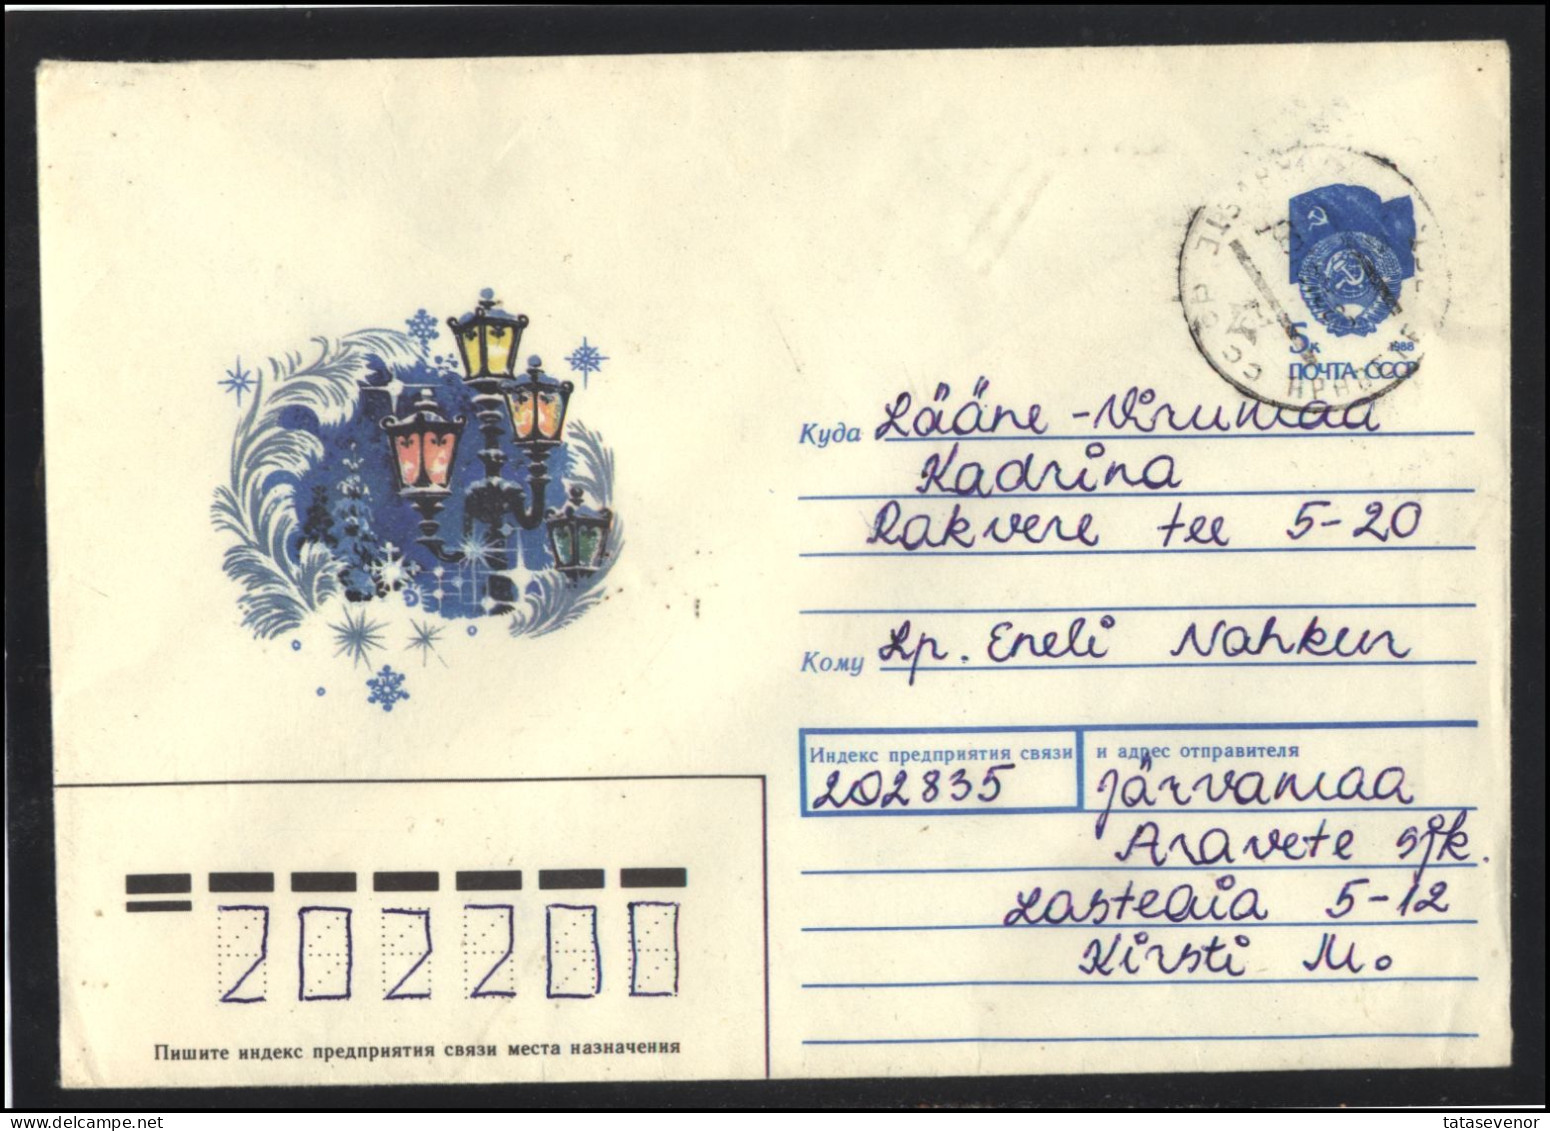 5к
1988
ПОЧТА СССР
Куда Lääne-Virumaa
Kadrina
Rakvere tee 5-20
Кому Lp. Eneli Nahkur
Индекс предприятия связи и адрес отправителя
202835 Järvamaa
Aravete sjk.
Lasteaia 5-12
Kirsti M.
202200
Пишите индекс предприятия связи места назначения
tatasevenor